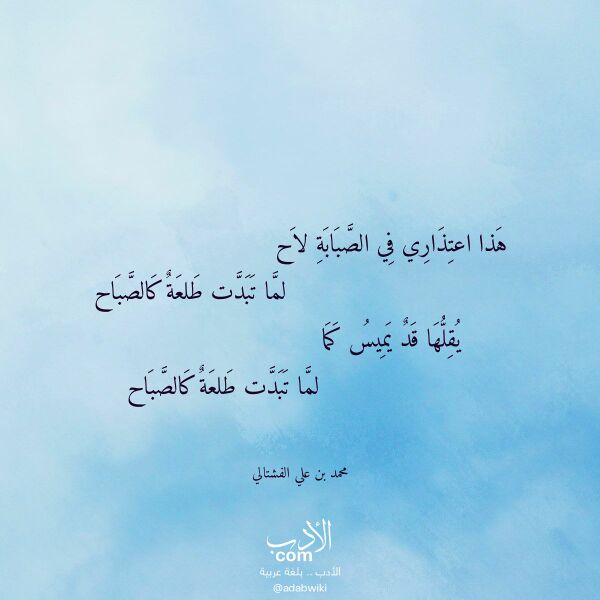 هَذا اعتِذَارِي فِي الصَّبَابَةِ لاَح
لمَّا تَبَدَّت طَلعَةٌ كَالصَّبَاح
يُقِلُّهَا قَدٌ يَمِيسُ كَمَا
لمَّا تَبَدَّت طَلعَةٌ كَالصَّبَاح
محمد بن علي الفشتالي
الأدب
com
الأدب .. بلغة عربية
@adabwiki